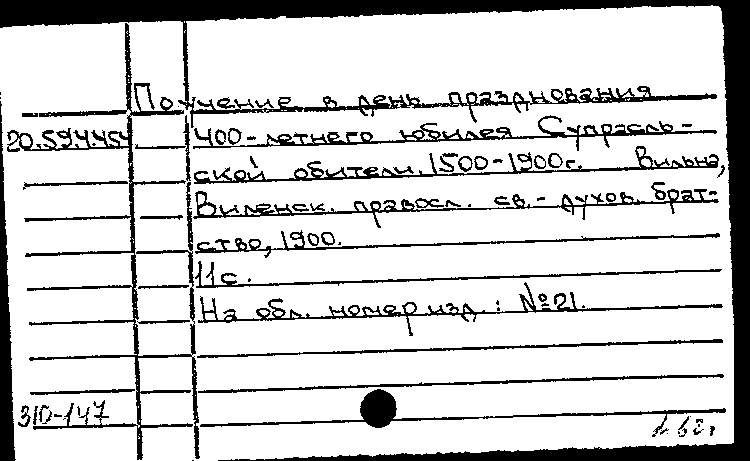 Поучение в день празднования
20.5944454 400-летнего юбилея Супрасль-
ской обители. 1500-1900г. Вильна,
Виленск. правосл. св.- духов. брат-
ство, 1900.
11с.
На обл. номер изд.: №21.
310-147